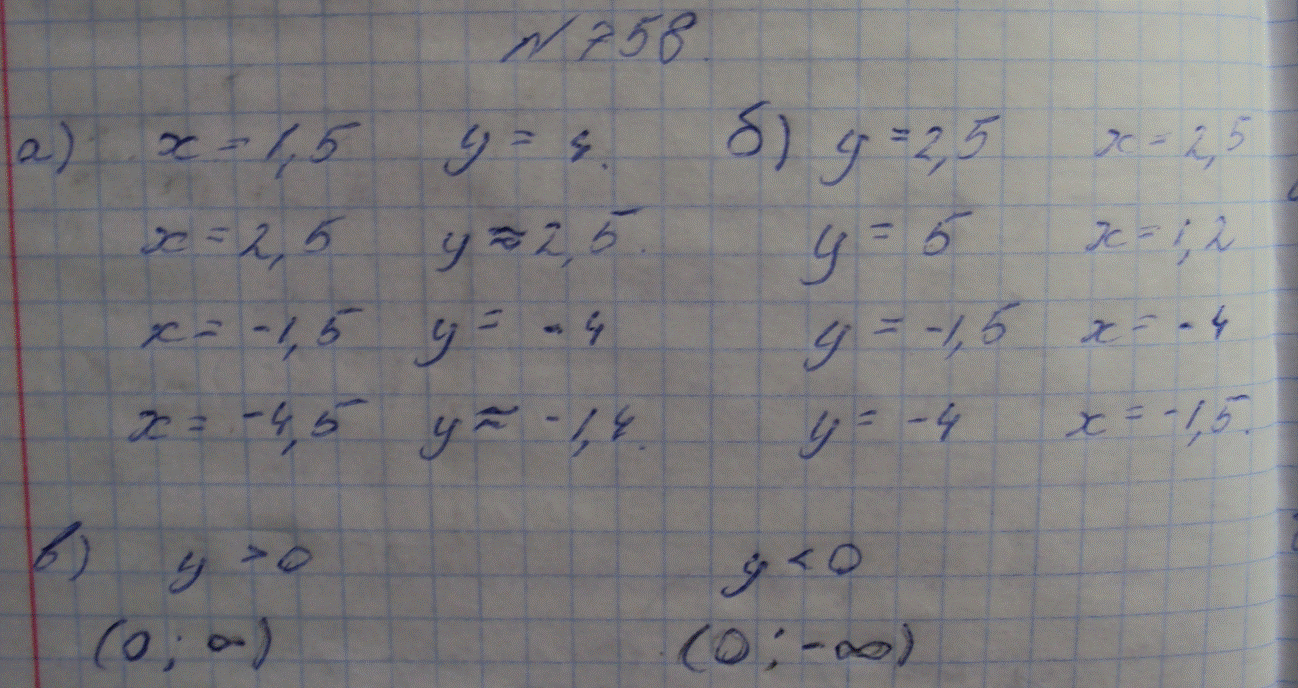 № 758.
а) x = 1,5 y = 4. б) y = 2,5 x = 2,5
x = 2,5 y ≈ 2,5. y = 5 x = 1,2
x = -1,5 y = -4 y = -1,5 x = -4
x = -4,5 y ≈ -1,4. y = -4 x = -1,5.
в) y > 0 y < 0
(0; ∞) (0; -∞)